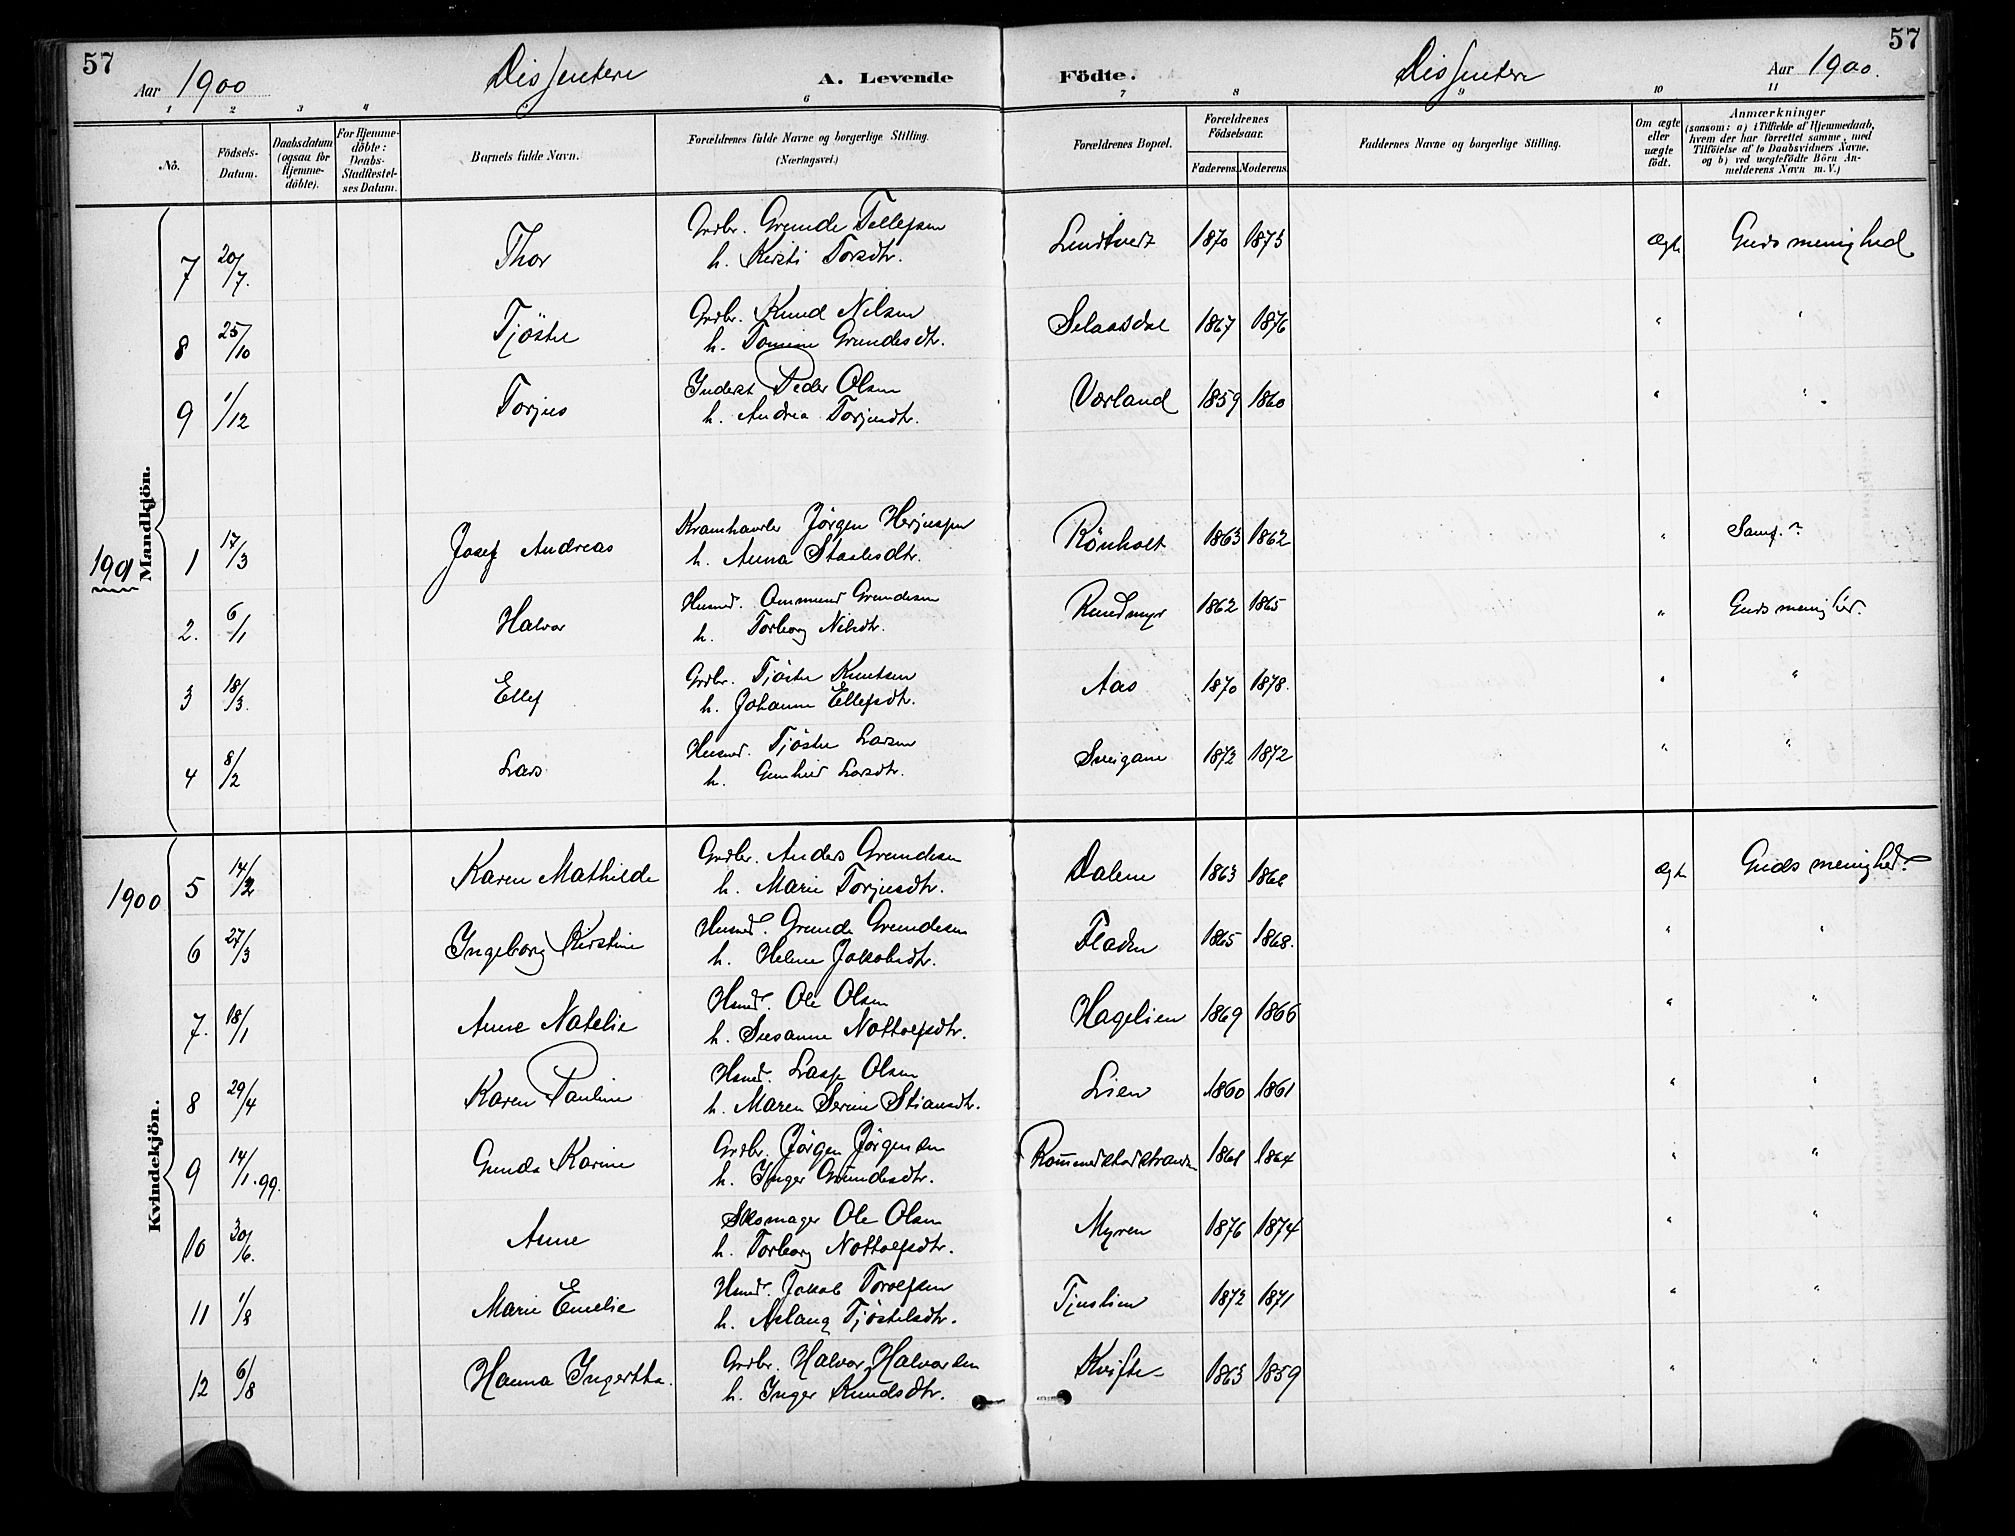 57
Aar 1900
Dissentere
A. Levende
Födte.
Dissentere
Aar 1900.
57
1 2 3 4 6 7 8 9 10 11
Nö.
Födsels-Datum.
Daabsdatum (ogsaa for Hjemmedöbte).
For Hjemmedöbte: Daabs-Stadfæstelses Datum.
Barnets fulde Navn.
Forældrenes fulde Navne og borgerlige Stilling. (Næringsvei.)
Forældrenes Bopæl.
Forældrenes Födselsaar.
Faderens. Moderens.
Faddernes Navne og borgerlige Stilling.
Om ægte eller uægte födt.
Anmærkninger (saasom: a) i Tilfælde af Hjemmedaab, hvem der har forrettet samme, med Tilföielse af to Daabsvidners Navne. og b) ved uægtefödte Börn Anmelderens Navn m. V.)
Mandkjön.
7 20/7. Thor Grdbr. Grunde Tellefsen Lundtvedt 1870 1873 Ægte Guds menighed
h. Kirsti Torsdtr.
8 25/10 Tjöstel Grdbr. Knud Nilsen Selaasdal 1867 1876 " "
h. Tomine Grundesdtr.
9 1/12 Torjus Inderst Peder Olsen Værland 1859 1860 " "
h. Andrea Torjusdtr.
1901
1 17/3 Josef Andreas Kramhandler Jörgen Herjussen Rönholt 1863 1862 " Samf. ?
h. Anna Staalesdtr.
2. 6/1 Halvor Husmd. Ommund Grundesen Rundmyr 1862 1865 " Guds menighed.
h. Torborg Nilsdtr.
3 18/3. Ellef Grdbr. Tjöstel Knutsen Aas 1870 1878. " "
h. Johanne Ellefsdtr.
4 8/2 Lars Husmd. Tjöstel Larsen 1872 1872 " "
h. Gunhild Larsdtr.
Kvindekjön.
1900
5 14/2 Karen Mathilde Grdbr. Anders Grundesen Dalene 1863 Ægte Guds menighed.
h. Marie Torjusdtr.
6 27/3 Ingeborg Kirstine Husmd. Grunde Grundesen Fladen 1865 1868. " "
h. Helene Jakobsdtr.
7. 18/1 Anne Natelie Husmd. Ole Olsen Hagelien 1869 1866 " "
h. Susanne Nottolfsdtr.
8 29/4 Karen Pauline Husmd. Lasse Olsen Lien 1860 1861 " "
h. Maren Serine Stiansdtr.
9 14/1.99. Gunda Karine Grdbr. Jörgen Jörgensen 1864 " "
h. Inger Grundesdtr.
10 30/6. Anne Skomager Ole Olsen Myren 1876 1874 " "
h. Torborg Nottolfsdtr.
11 1/8 Marie Emelie Husmd. Jakob Torolfsen 1872 1871 " "
h. Aslaug Tjöstelsdtr.
12 6/8 Hanna Ingertha. Grdbr. Halvor Halvorsen Kvifte 1863 1859 " "
h. Inger Knudsdtr.